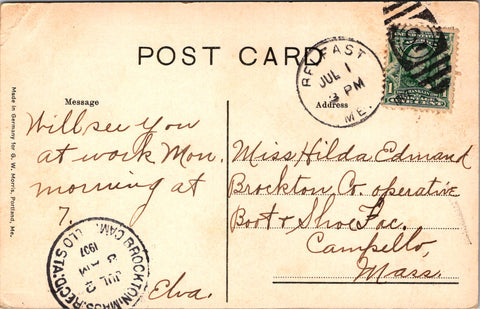 POST CARD
BELFAST
JUL 1
3 PM
ME.
1
Message
Address
Will see you
at work Mon.
morning at
7.
Elva.
Miss Hilda Edmund
Brockton Co. operative
Boot & Shoe Fac.
Campello,
Mass.
BROCKTON, MASS. REC'D
CAMPELLO STA.
JUL 2
AM
1907
Made in Germany for G. W. Morris, Portland, Me.